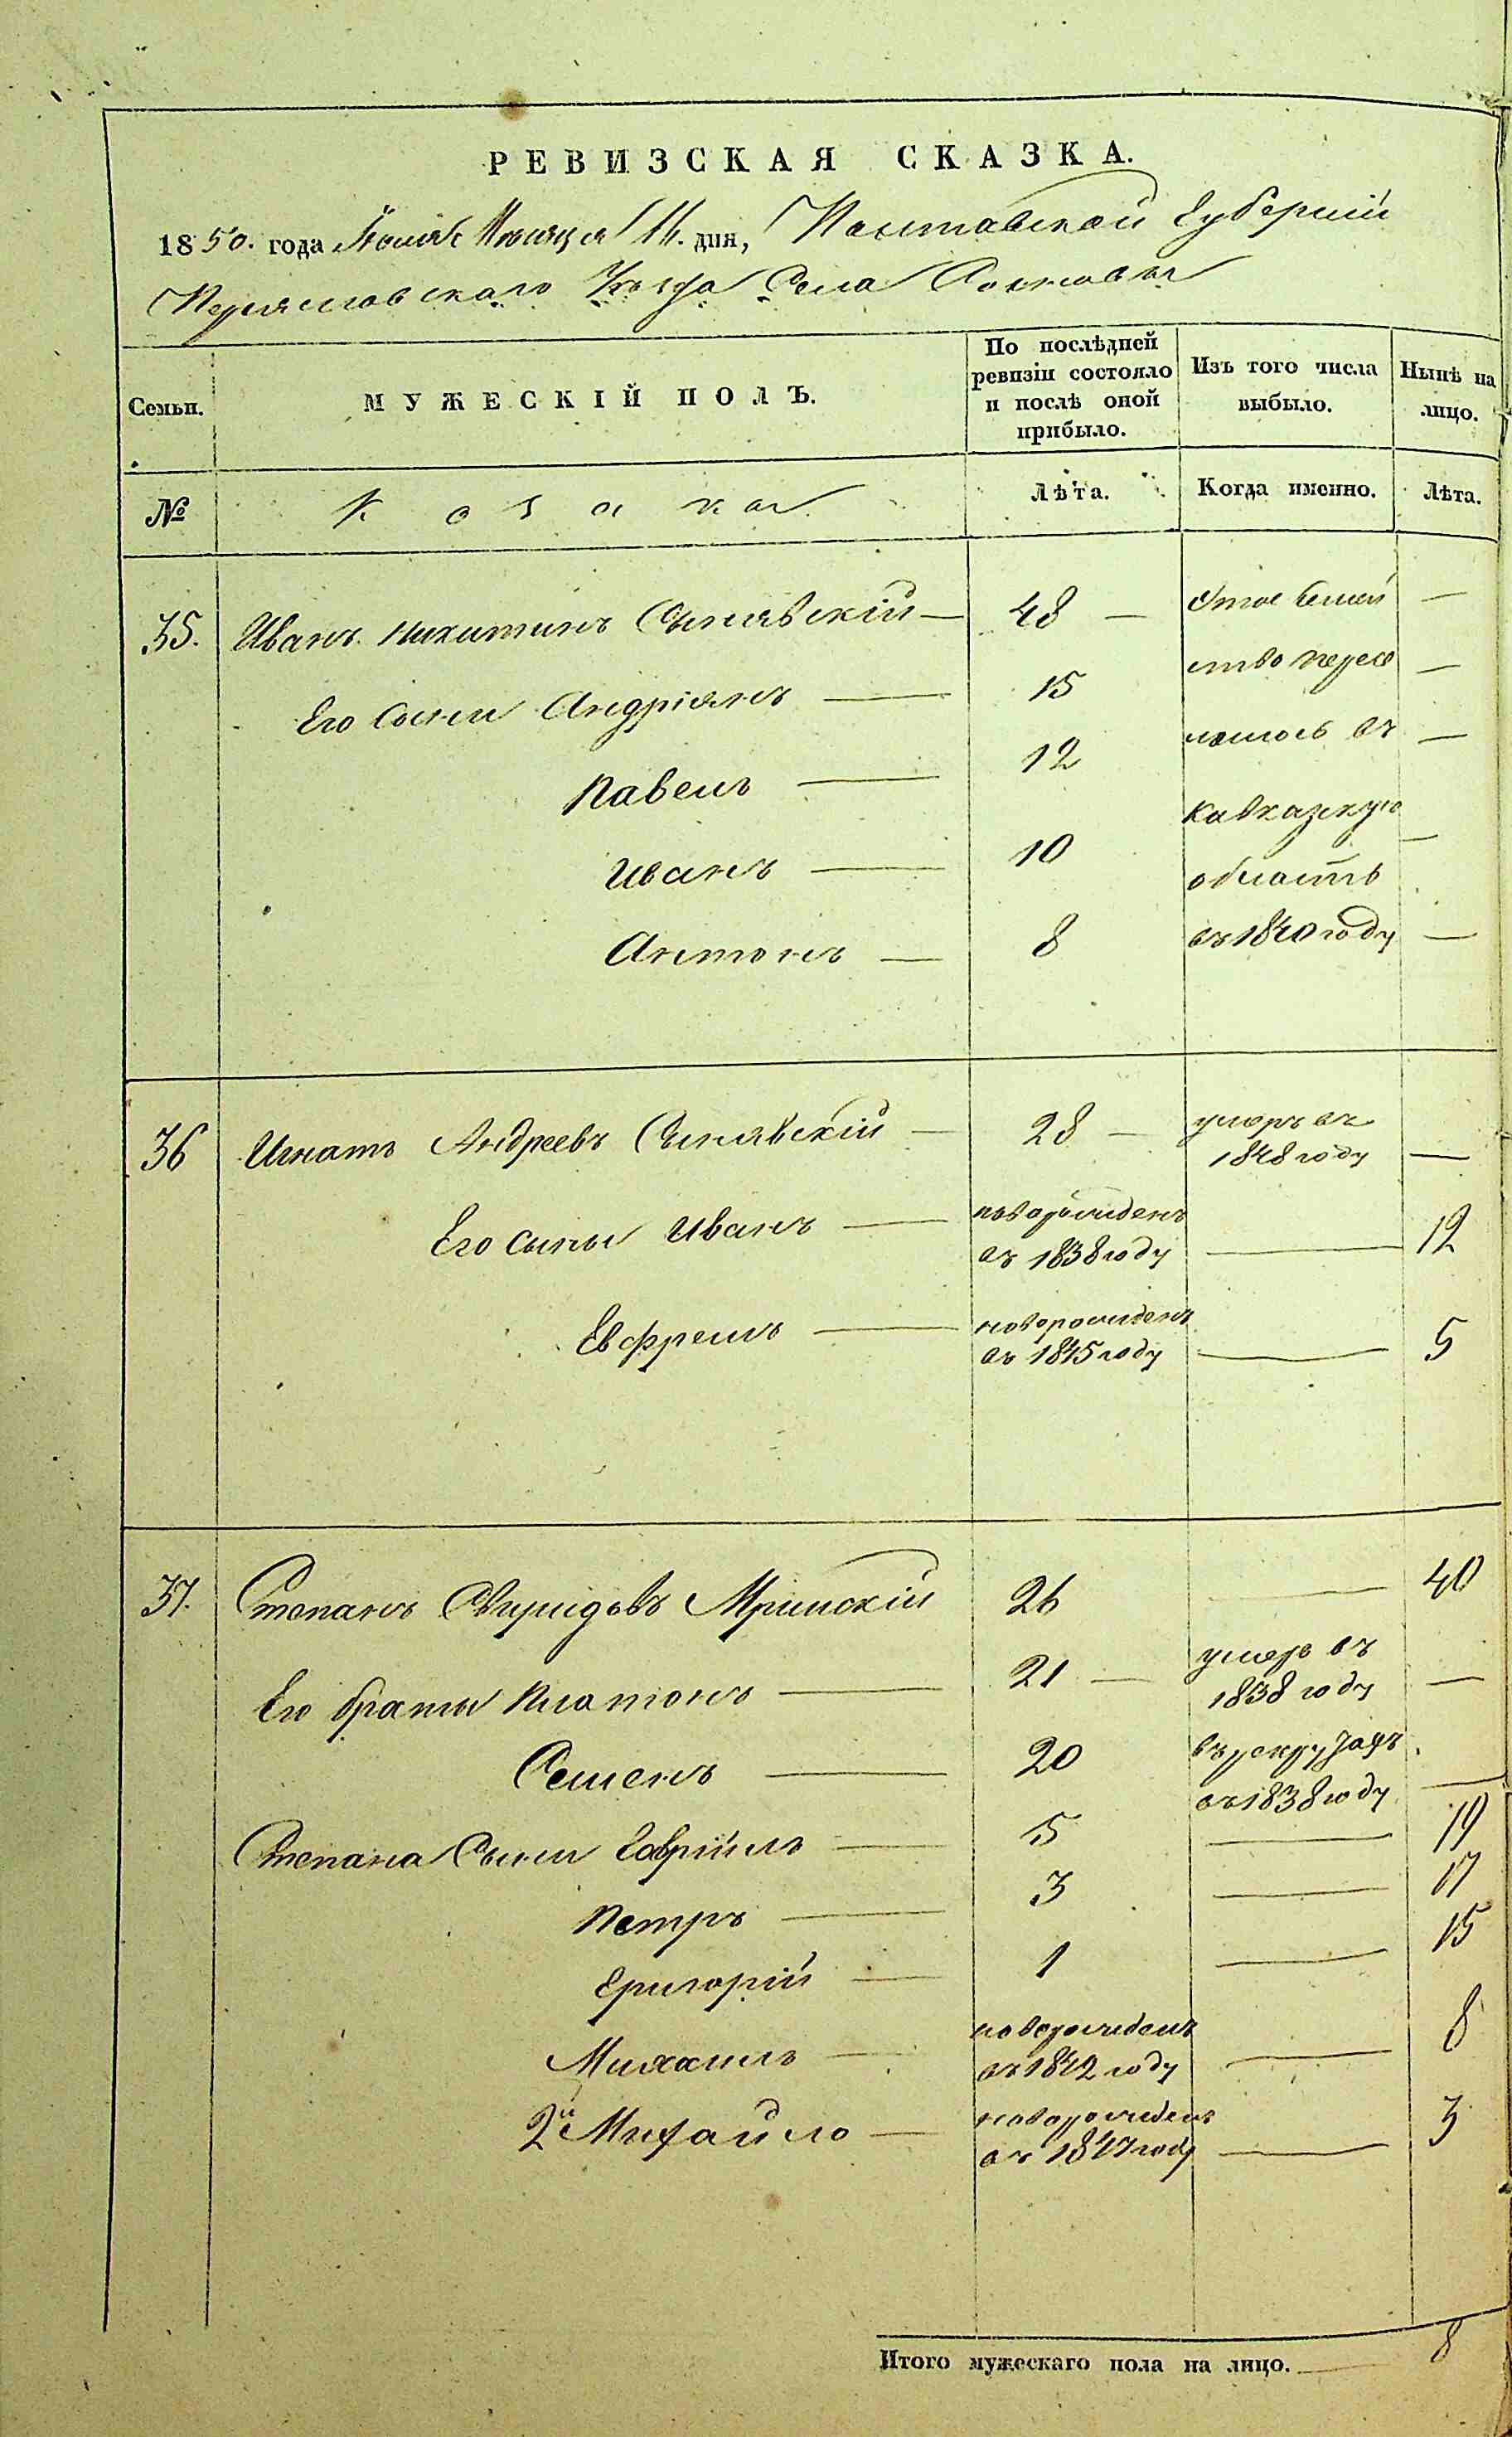 РЕВИЗСКАЯ СКАЗКА.
1850. года Мѣсяца дня, Полтавской Губерніи
Переяславскаго Уѣзда Села
Семьи.
МУЖЕСКІЙ ПОЛЪ.
По послѣдней ревизіи состояло и послѣ оной прибыло.
Изъ того числа выбыло.
Нынѣ на лицо.
№
Козаки
Лѣта.
Когда именно.
Лѣта.
35. Иванъ Никитинъ Сынявскій — 48 — Этое Семей —
Его Сыни Андріянъ — 15 ство пересе —
Павелъ — 12 лилось въ —
Иванъ — 10 Кавказкую —
область
Антонъ — 8 въ 1840 году —
36 Игнатъ Андреевъ Сынявскій — 28 — умеръ въ
1848 году —
Его сыны Иванъ — новорожденъ
въ 1838 году — 12
Евфремъ — новорожденъ
въ 1845 году — 5
37. Степанъ Свиридовъ Мринскій 26 — 40
Его браты Платонъ — 21 — умеръ въ
1838 году —
Семенъ — 20
въ 1838 году —
Степана Сыни Гавріилъ — 5 — 19
Петръ — 3 — 17
Григорій — 1 — 15
Михаилъ — новорожденъ
въ 1842 году — 8
2й Михайло — новорожденъ
въ 1847 году — 3
Итого мужескаго пола на лицо. — 8